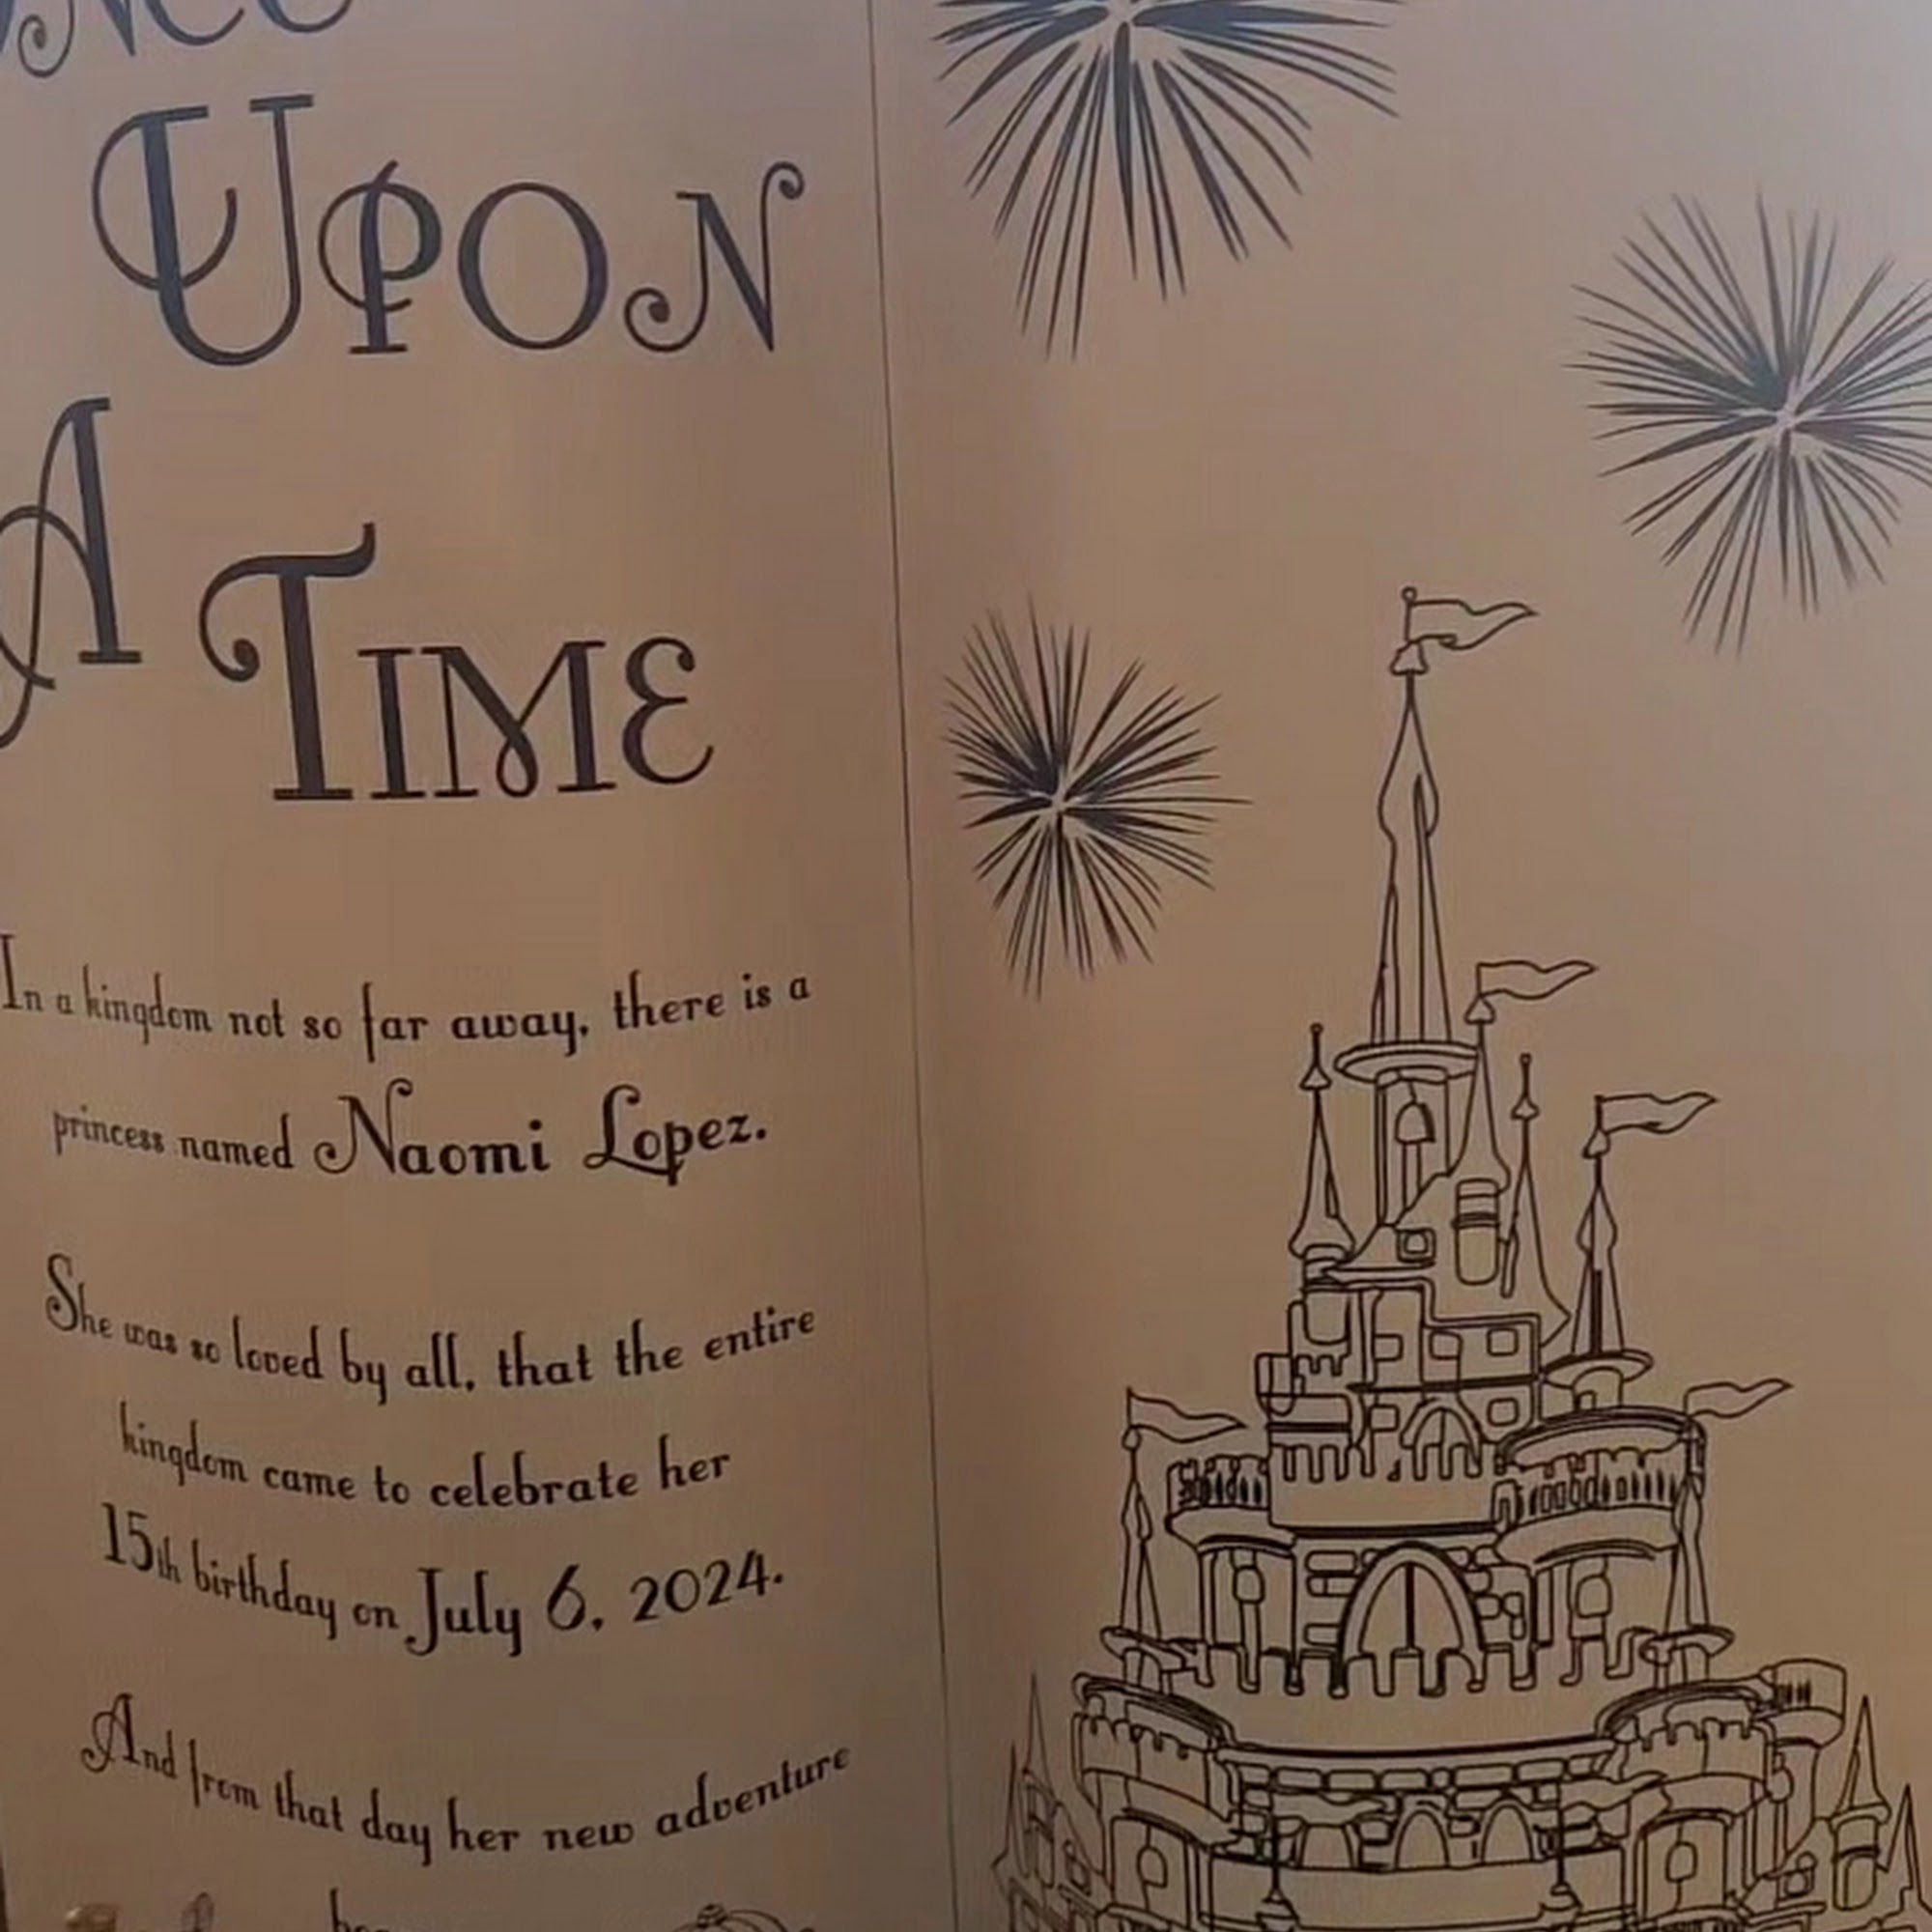 UPON
A TIME
In a kingdom not so far away, there is a
princess named Naomi Lopez.
She was so loved by all, that the entire
kingdom came to celebrate her
15th birthday on July 6, 2024.
And from that day her new adventure